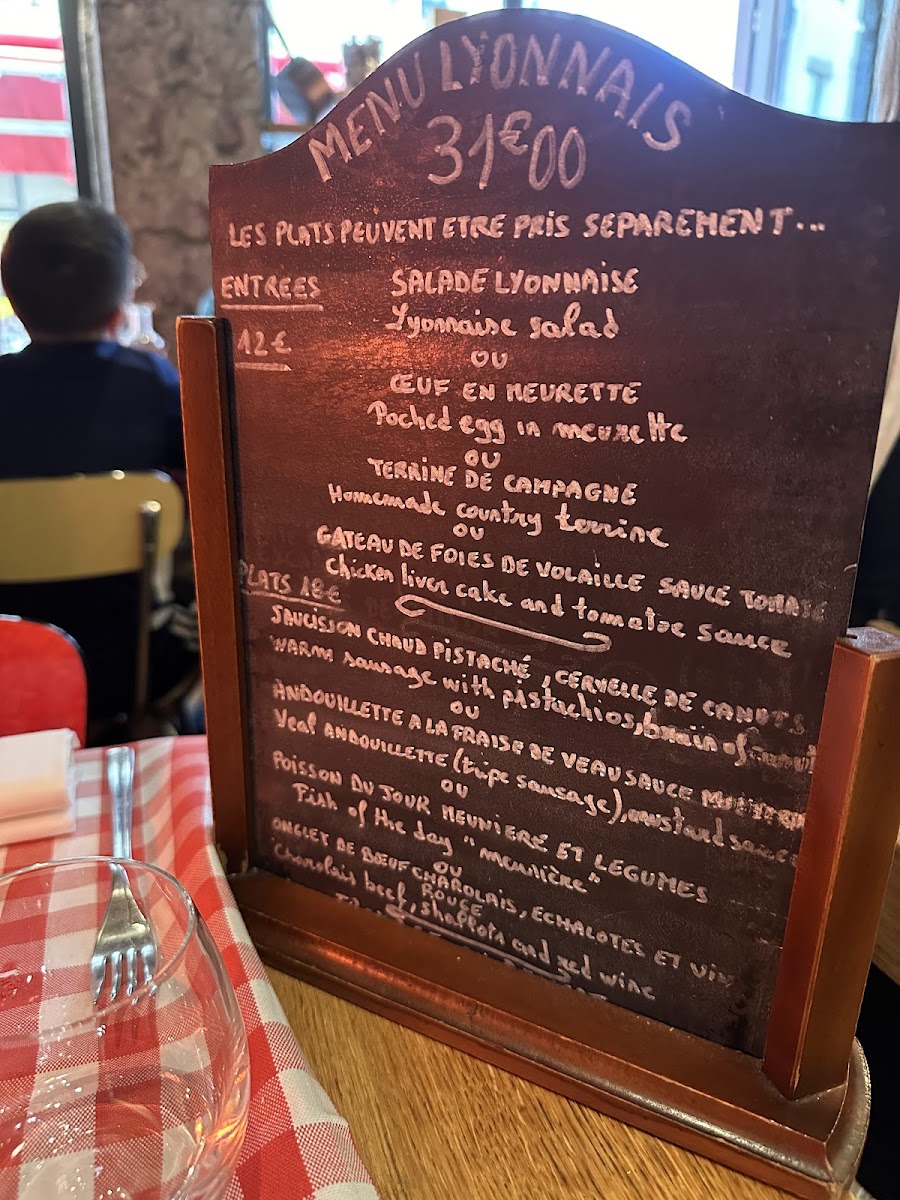 MENU LYONNAIS
31€00
LES PLATS PEUVENT ETRE PRIS SEPAREMENT...
ENTREES
12€
SALADE LYONNAISE
Lyonnaise salad
OU
ŒUF EN MEURETTE
Poched egg in meurette
OU
TERRINE DE CAMPAGNE
Homemade country terrine
OU
GATEAU DE FOIES DE VOLAILLE SAUCE TOMATE
Chicken liver cake and tomatoe sauce
PLATS 18€
SAUCISSON CHAUD PISTACHÉ, CERVELLE DE CANUTS
WARM sausage with pistachios, brain of
OU
ANDOUILLETTE A LA FRAISE DE VEAU SAUCE
Veal ANDOUILLETTE (tripe sausage), mustard sauce
OU
POISSON DU JOUR MEUNIERE ET LEGUMES
Fish of the day "meunière"
OU
ONGLET DE BŒUF CHAROLAIS, ECHALOTES ET VIN
ROUGE
Charolais beef, shallots and red wine